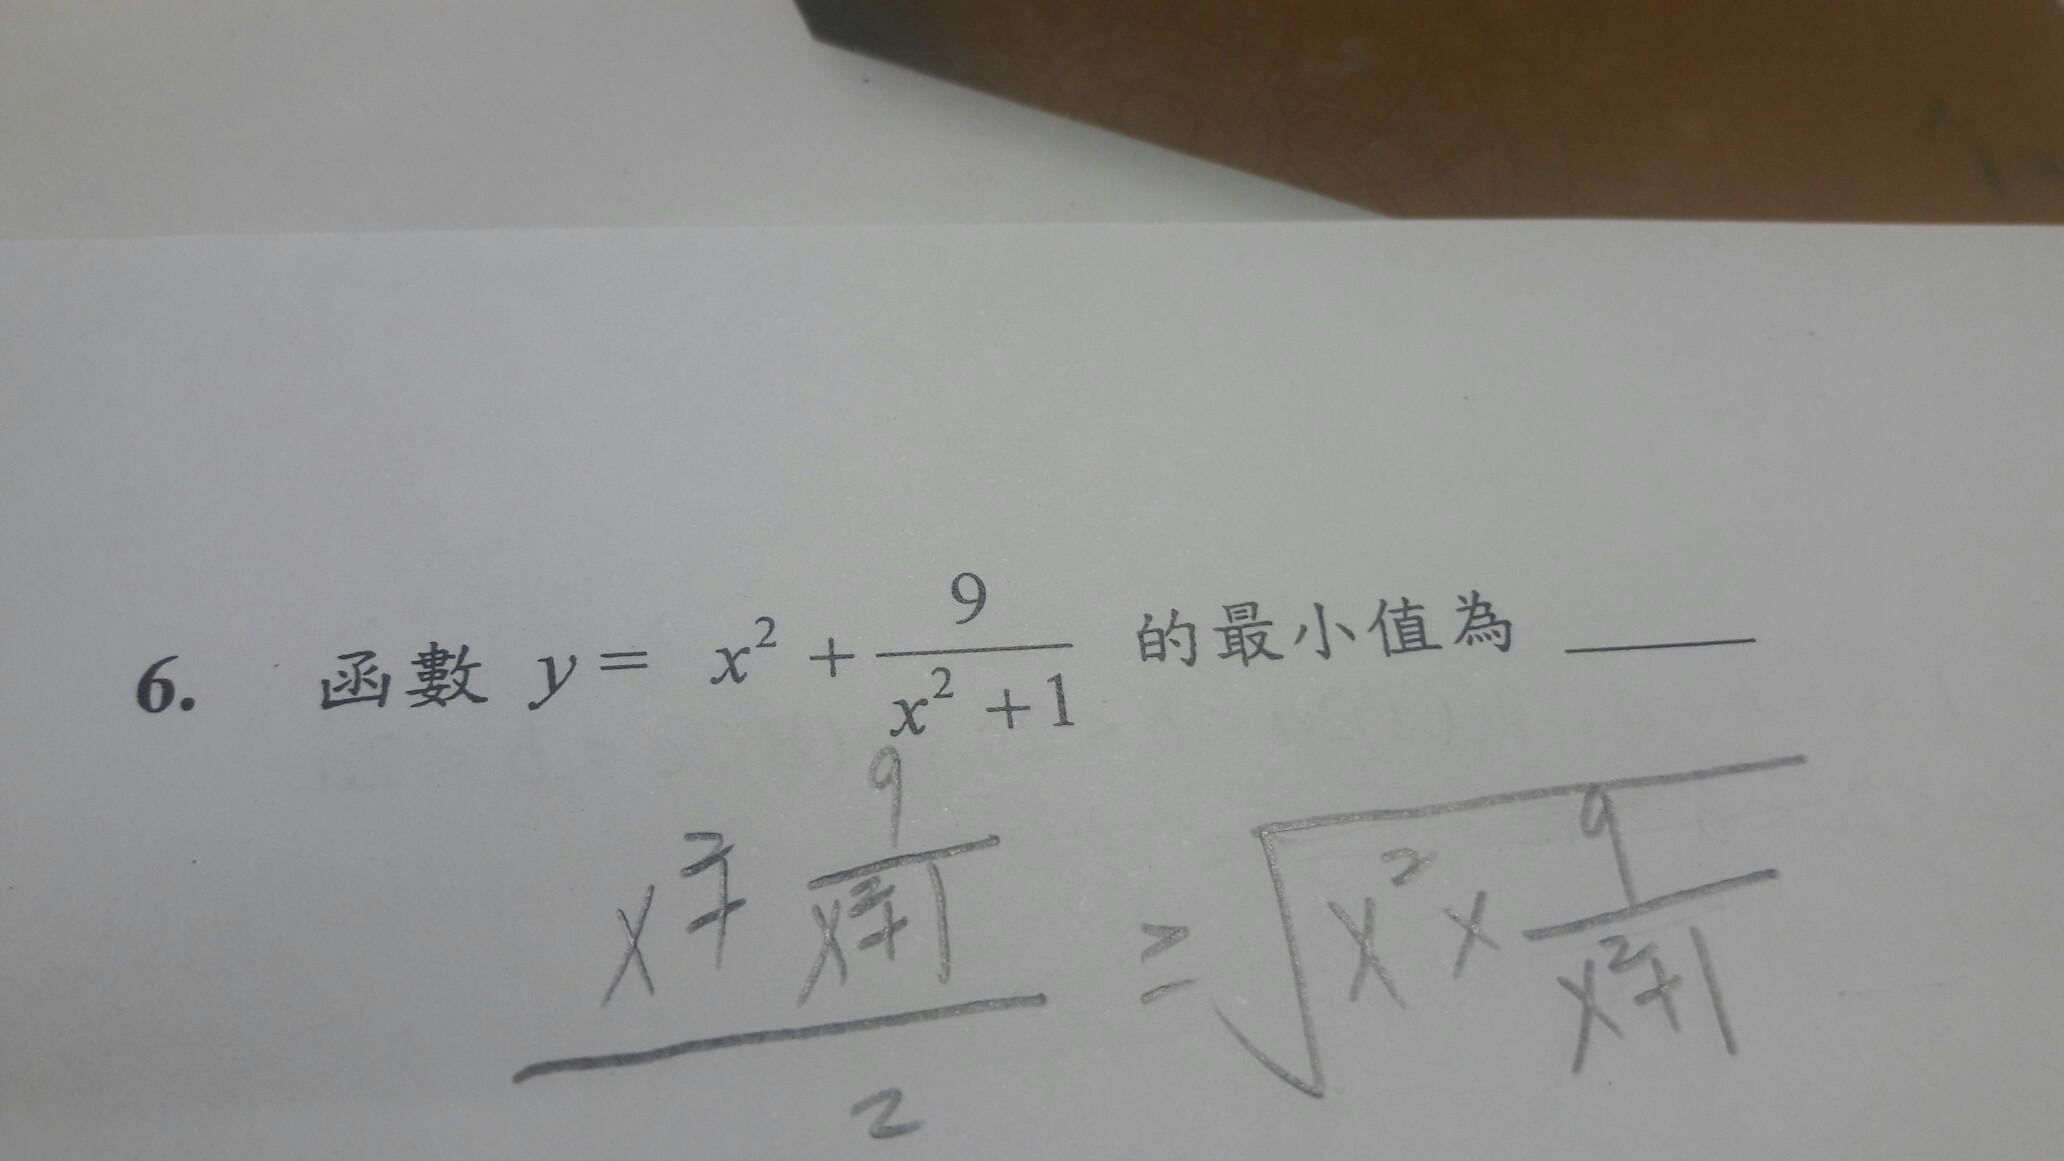 6. 函數 y = x² + 9/(x² + 1) 的最小值為 ____
(x² + 9/(x²+1))/2 ≥ √(x² × 9/(x²+1))